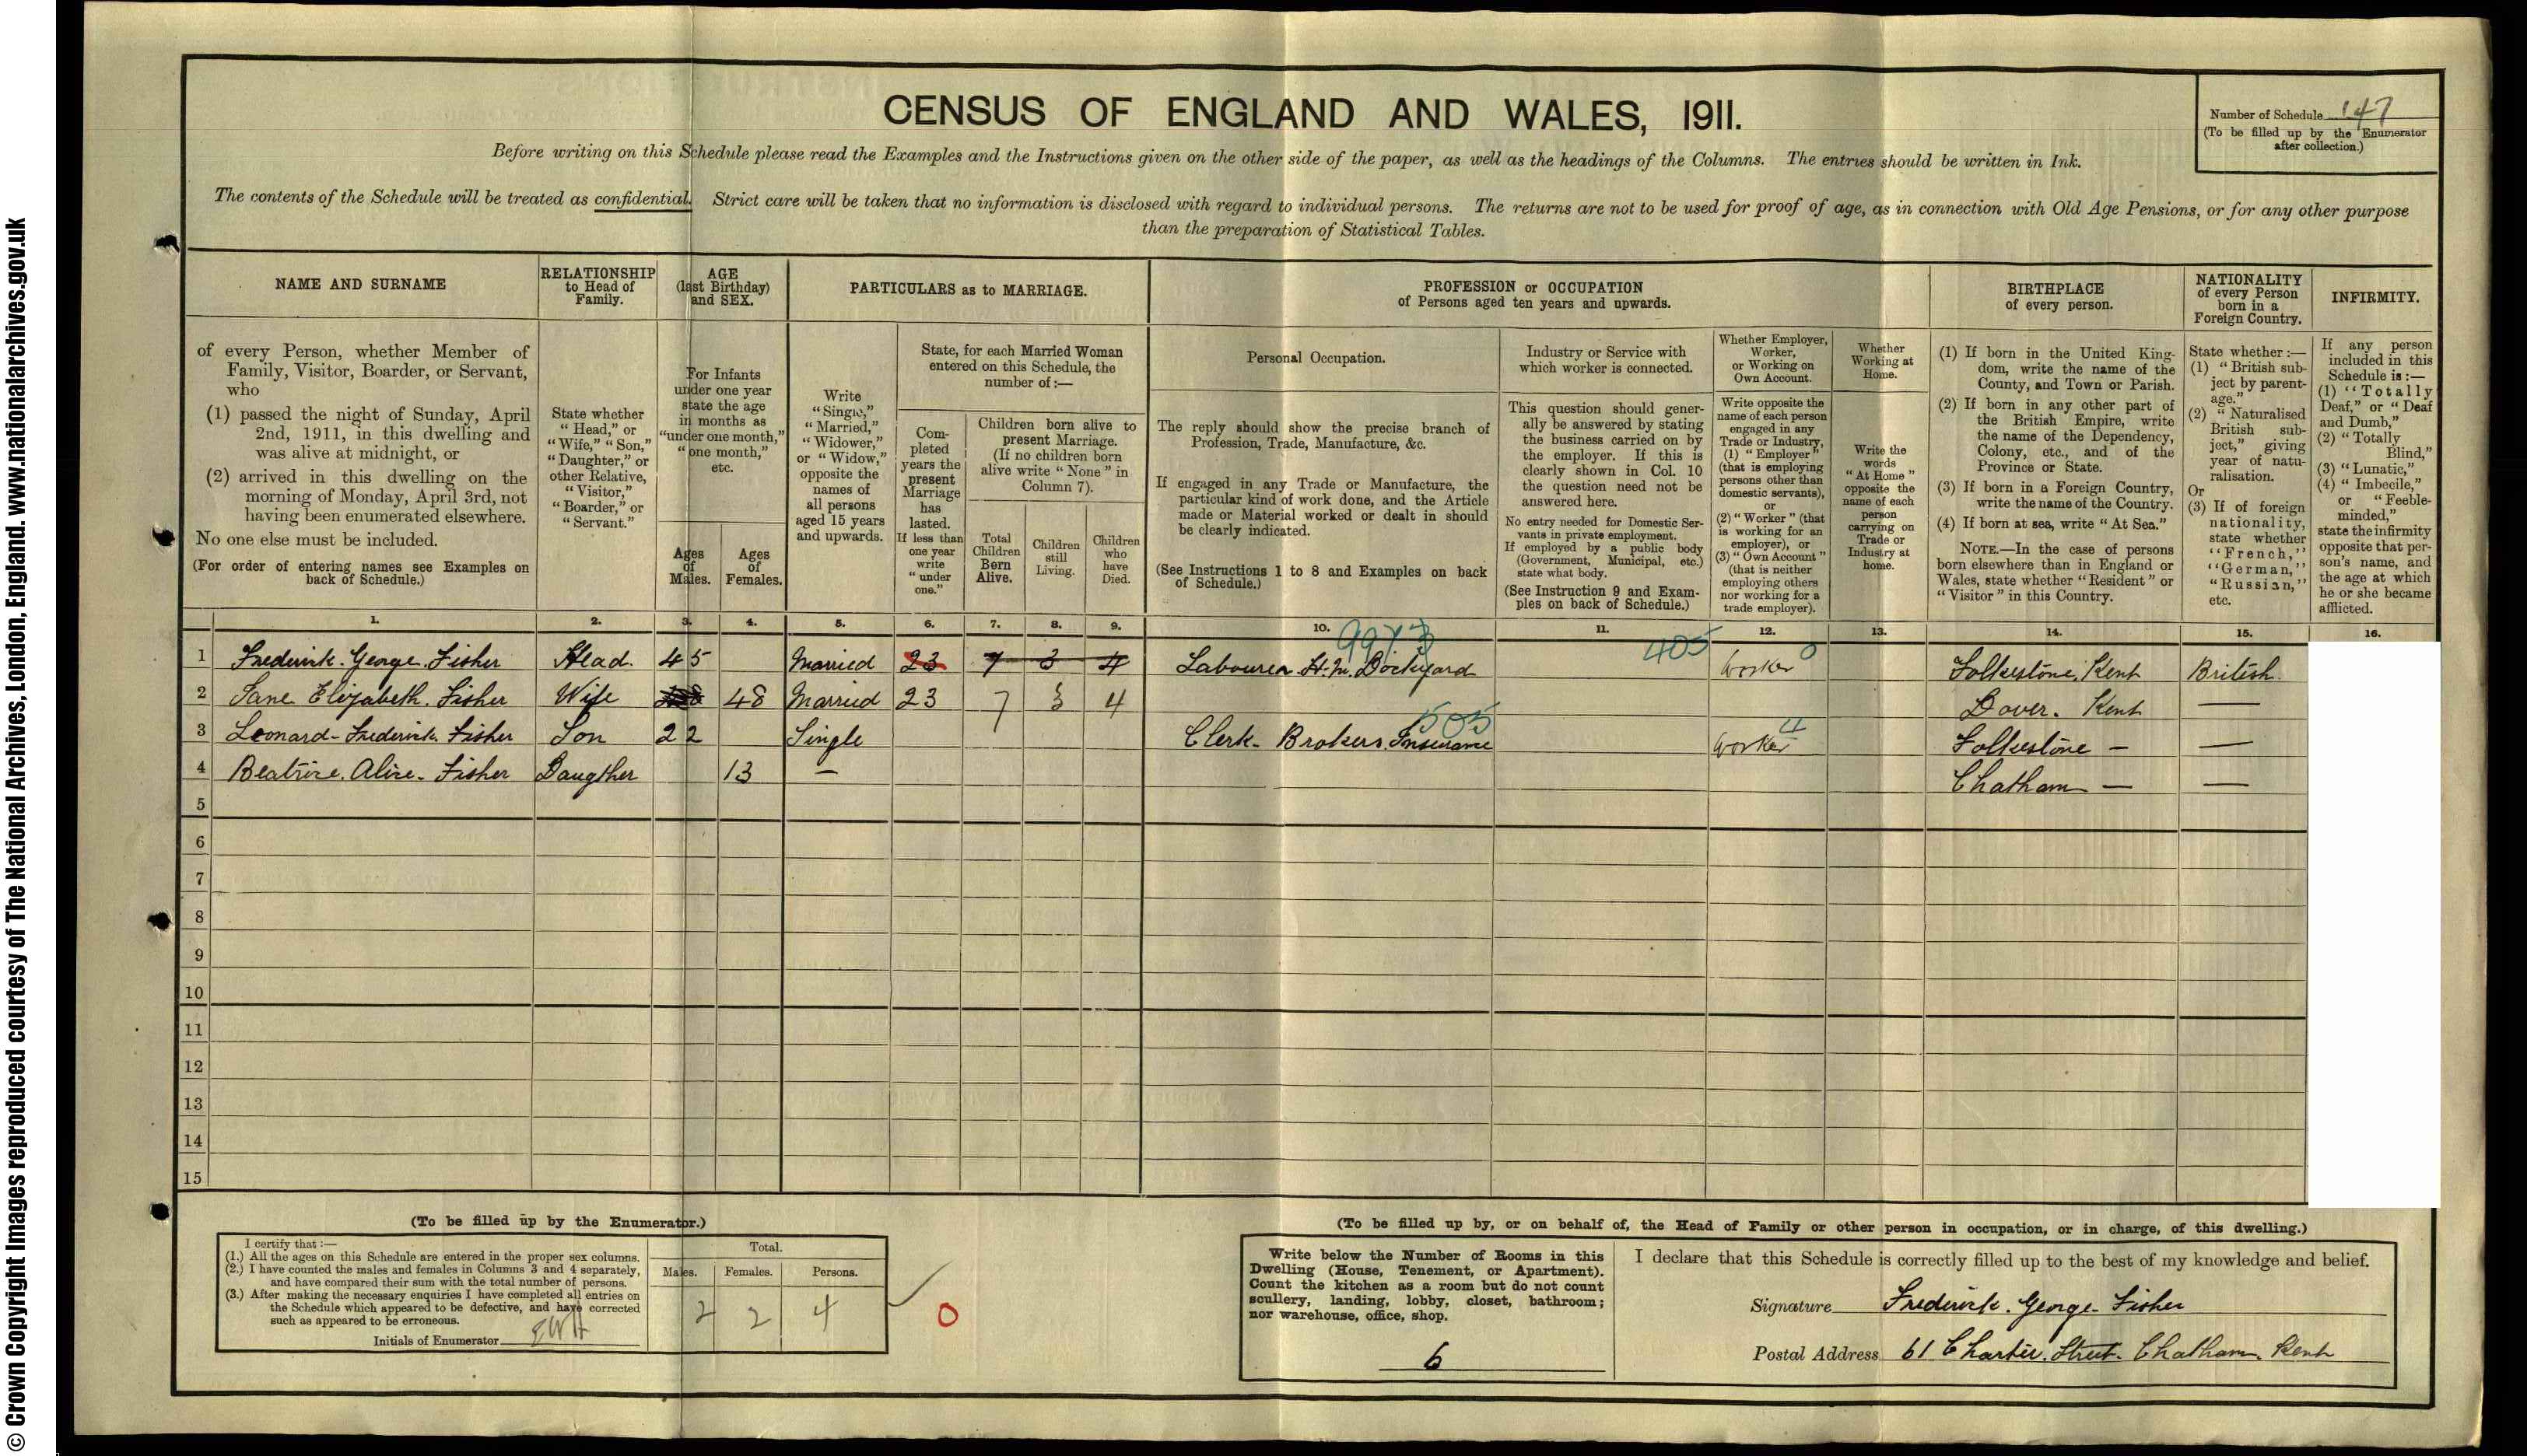 © Crown Copyright Images reproduced courtesy of The National Archives, London, England. www.nationalarchives.gov.uk
CENSUS OF ENGLAND AND WALES, 1911.
Number of Schedule 147
(To be filled up by the Enumerator
after collection.)
Before writing on this Schedule please read the Examples and the Instructions given on the other side of the paper, as well as the headings of the Columns. The entries should be written in Ink.
The contents of the Schedule will be treated as confidential. Strict care will be taken that no information is disclosed with regard to individual persons. The returns are not to be used for proof of age, as in connection with Old Age Pensions, or for any other purpose
than the preparation of Statistical Tables.
NAME AND SURNAME
of every Person, whether Member of
Family, Visitor, Boarder, or Servant,
who
(1) passed the night of Sunday, April
2nd, 1911, in this dwelling and
was alive at midnight, or
(2) arrived in this dwelling on the
morning of Monday, April 3rd, not
having been enumerated elsewhere.
No one else must be included.
(For order of entering names see Examples on
back of Schedule.)
RELATIONSHIP
to Head of
Family.
State whether
"Head," or
"Wife," "Son,"
"Daughter," or
other Relative,
"Visitor,"
"Boarder," or
"Servant."
AGE
(last Birthday)
and SEX.
For Infants
under one year
state the age
in months as
"under one month,"
"one month,"
etc.
Ages
of
Males.
Ages
of
Females.
PARTICULARS as to MARRIAGE.
Write
"Single,"
"Married,"
"Widower,"
or "Widow,"
opposite the
names of
all persons
aged 15 years
and upwards.
State, for each Married Woman
entered on this Schedule, the
number of :—
Com-
pleted
years the
present
Marriage
has
lasted.
If less than
one year
write
"under
one."
Children born alive to
present Marriage.
(If no children born
alive write "None" in
Column 7).
Total
Children
Born
Alive.
Children
still
Living.
Children
who
have
Died.
PROFESSION or OCCUPATION
of Persons aged ten years and upwards.
Personal Occupation.
The reply should show the precise branch of
Profession, Trade, Manufacture, &c.
If engaged in any Trade or Manufacture, the
particular kind of work done, and the Article
made or Material worked or dealt in should
be clearly indicated.
(See Instructions 1 to 8 and Examples on back
of Schedule.)
Industry or Service with
which worker is connected.
This question should gener-
ally be answered by stating
the business carried on by
the employer. If this is
clearly shown in Col. 10
the question need not be
answered here.
No entry needed for Domestic Ser-
vants in private employment.
If employed by a public body
(Government, Municipal, etc.)
state what body.
(See Instruction 9 and Exam-
ples on back of Schedule.)
Whether Employer,
Worker,
or Working on
Own Account.
Write opposite the
name of each person
engaged in any
Trade or Industry,
(1) "Employer"
(that is employing
persons other than
domestic servants),
or
(2) "Worker" (that
is working for an
employer), or
(3) "Own Account"
(that is neither
employing others
nor working for a
trade employer).
Whether
Working at
Home.
Write the
words
"At Home"
opposite the
name of each
person
carrying on
Trade or
Industry at
home.
BIRTHPLACE
of every person.
(1) If born in the United King-
dom, write the name of the
County, and Town or Parish.
(2) If born in any other part of
the British Empire, write
the name of the Dependency,
Colony, etc., and of the
Province or State.
(3) If born in a Foreign Country,
write the name of the Country.
(4) If born at sea, write "At Sea."
NOTE.—In the case of persons
born elsewhere than in England or
Wales, state whether "Resident" or
"Visitor" in this Country.
NATIONALITY
of every Person
born in a
Foreign Country.
State whether :—
(1) "British sub-
ject by parent-
age."
(2) "Naturalised
British sub-
ject," giving
year of natu-
ralisation.
Or
(3) If of foreign
nationality,
state whether
"French,"
"German,"
"Russian,"
etc.
INFIRMITY.
If any person
included in this
Schedule is :—
(1) "Totally
Deaf," or "Deaf
and Dumb,"
(2) "Totally
Blind,"
(3) "Lunatic,"
(4) "Imbecile,"
or "Feeble-
minded,"
state the infirmity
opposite that per-
son's name, and
the age at which
he or she became
afflicted.
1. 2. 3. 4. 5. 6. 7. 8. 9. 10. 11. 12. 13. 14. 15. 16.
1 Frederick. George. Fisher Head. 45 Married 23 7 3 4 Labourer H.M. Dockyard 405 Worker 0 Folkestone, Kent British
2 Jane Elizabeth. Fisher Wife 48 Married 23 7 3 4 Dover. Kent —
3 Leonard-Frederick. Fisher Son 22 Single Clerk- Brokers Insurance 505 Worker 4 Folkestone — —
4 Beatrice. Alice- Fisher Daugther 13 — Chatham — —
5
6
7
8
9
10
11
12
13
14
15
(To be filled up by the Enumerator.)
I certify that :—
(1.) All the ages on this Schedule are entered in the proper sex columns.
(2.) I have counted the males and females in Columns 3 and 4 separately,
and have compared their sum with the total number of persons.
(3.) After making the necessary enquiries I have completed all entries on
the Schedule which appeared to be defective, and have corrected
such as appeared to be erroneous.
Initials of Enumerator
Total.
Males. Females. Persons.
2 2 4
0
(To be filled up by, or on behalf of, the Head of Family or other person in occupation, or in charge, of this dwelling.)
Write below the Number of Rooms in this
Dwelling (House, Tenement, or Apartment).
Count the kitchen as a room but do not count
scullery, landing, lobby, closet, bathroom;
nor warehouse, office, shop.
6
I declare that this Schedule is correctly filled up to the best of my knowledge and belief.
Signature Frederick. George- Fisher
Postal Address 61 Charter. Street. Chatham. Kent